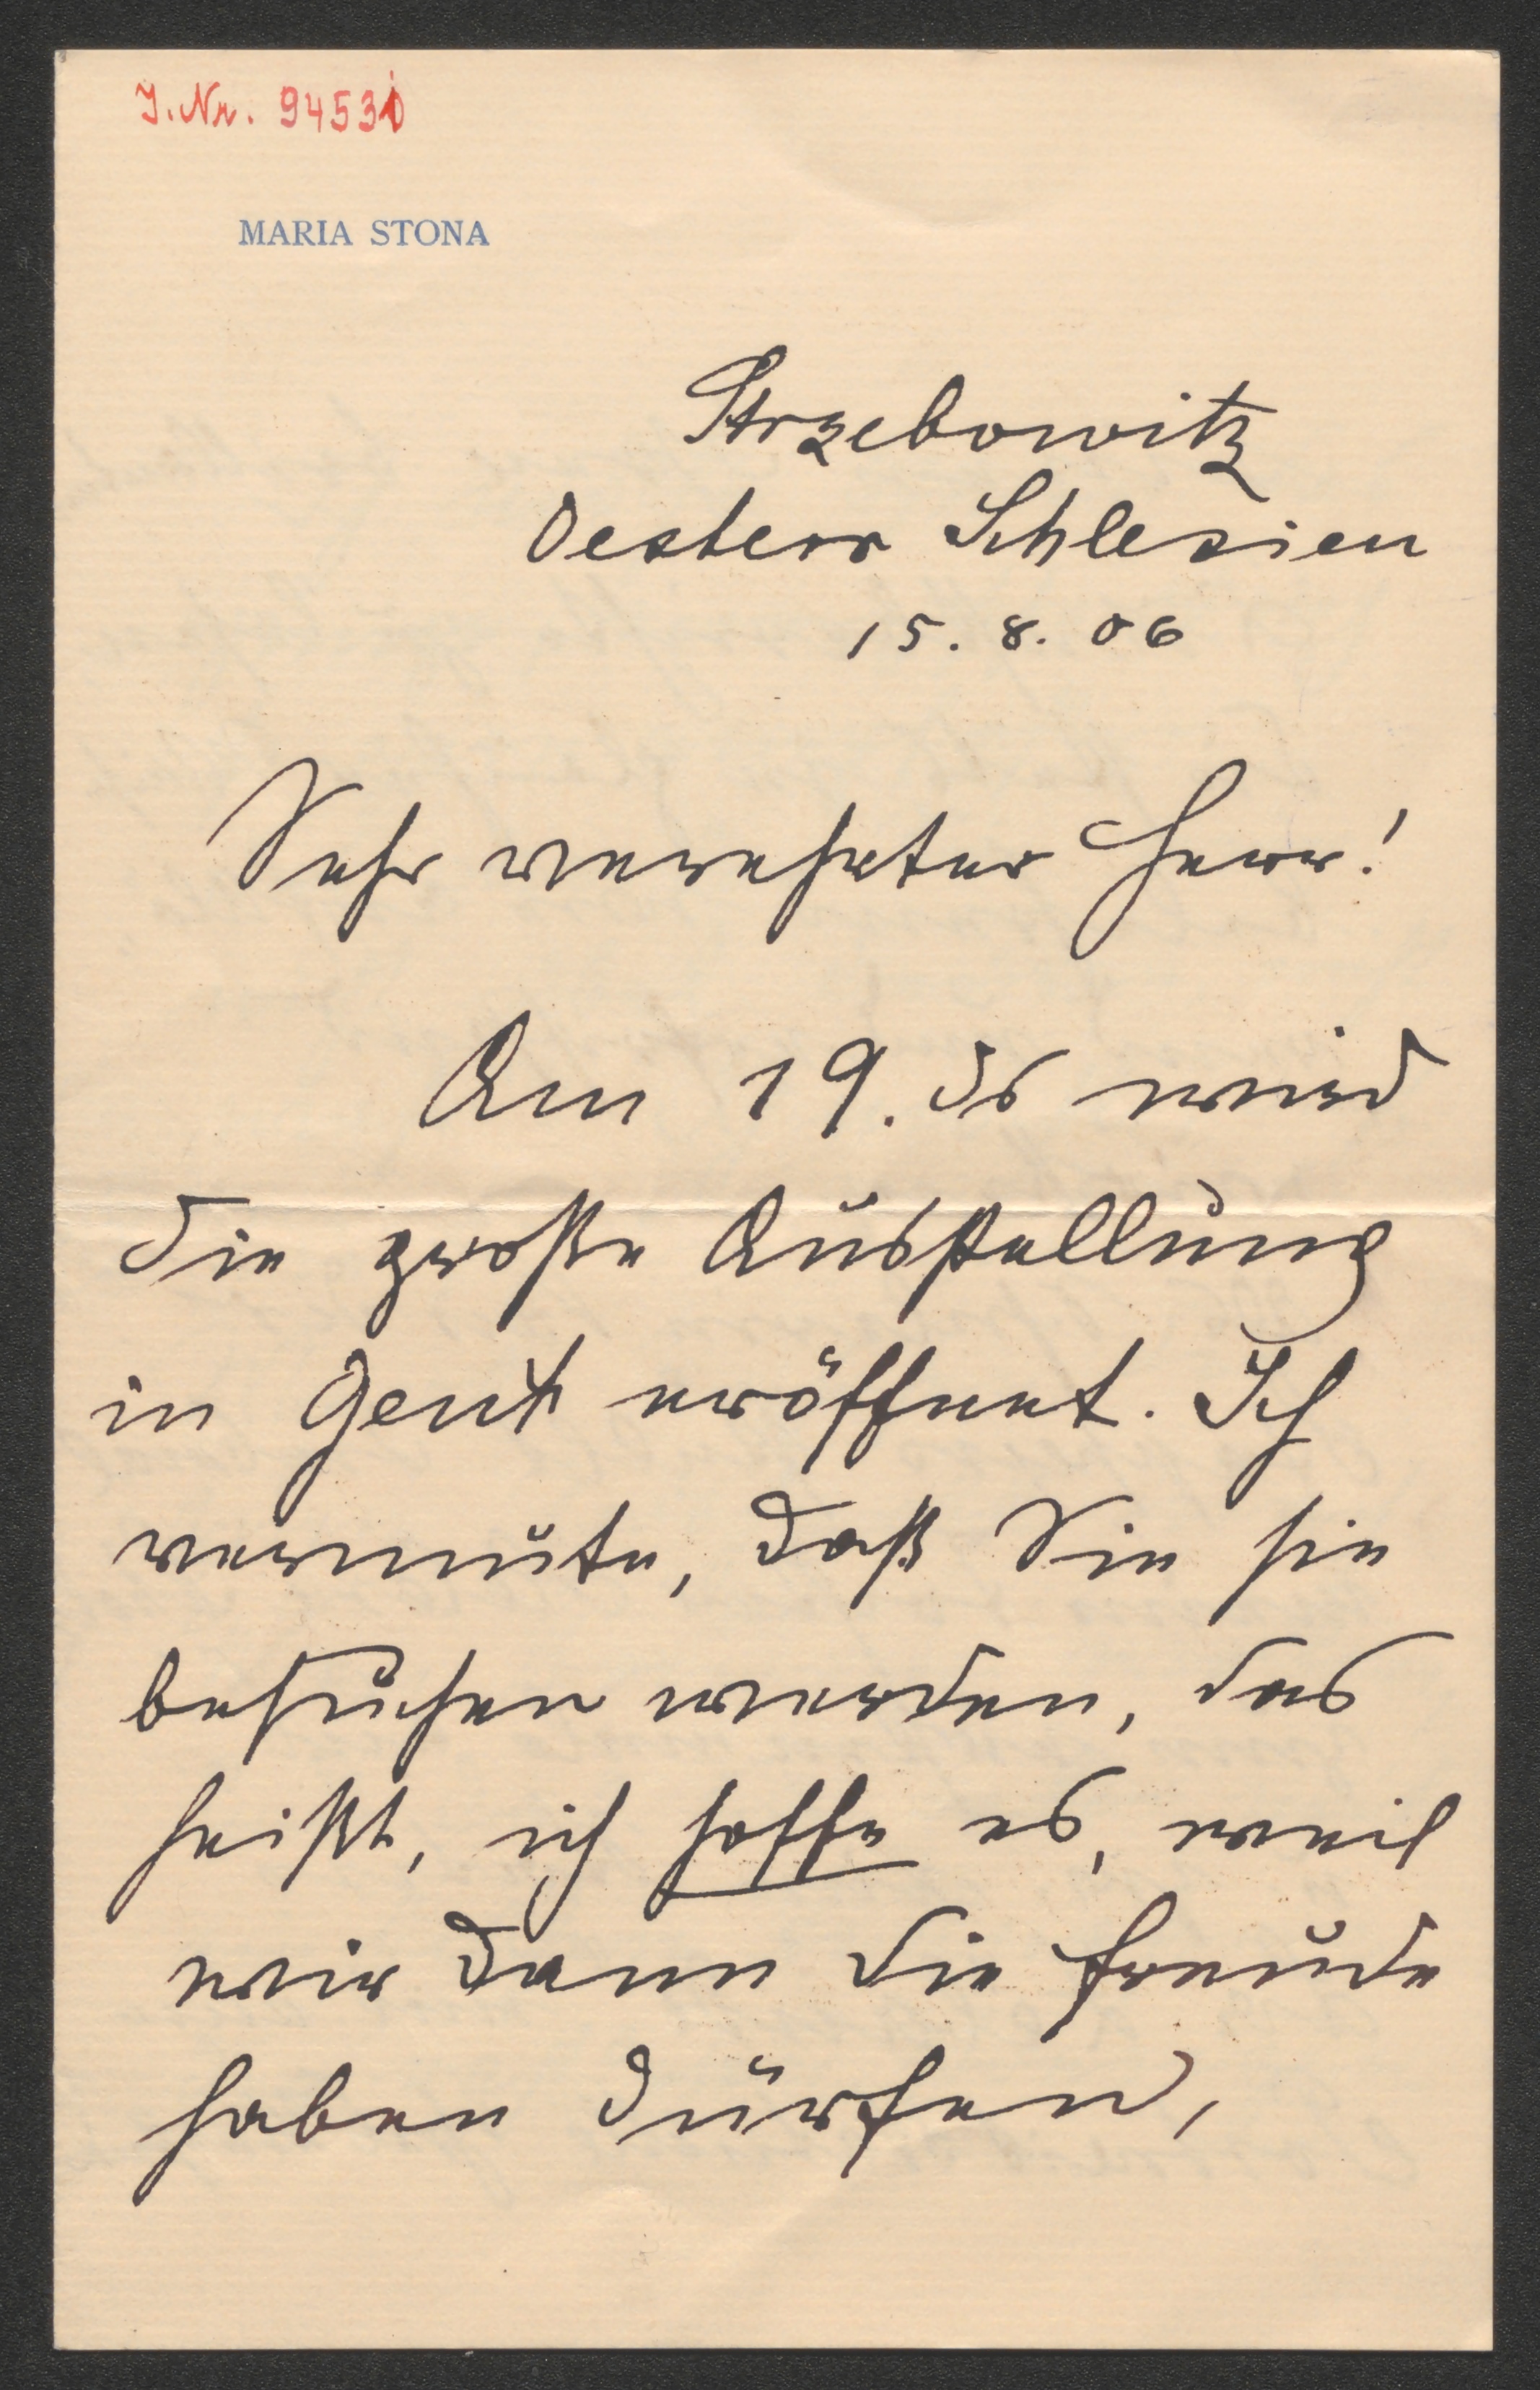 J. Nr. 94531
MARIA STONA
Strzebowitz
Oesterr Schlesien
15. 8. 06
Sehr verehrter Herr!
Am 19. ds wird
die große Ausstellung
in Gent eröffnet. Ich
vermute, daß Sie sie
besuchen werden, das
heißt, ich hoffe es, weil
wir dann die Freude
haben dürfen,